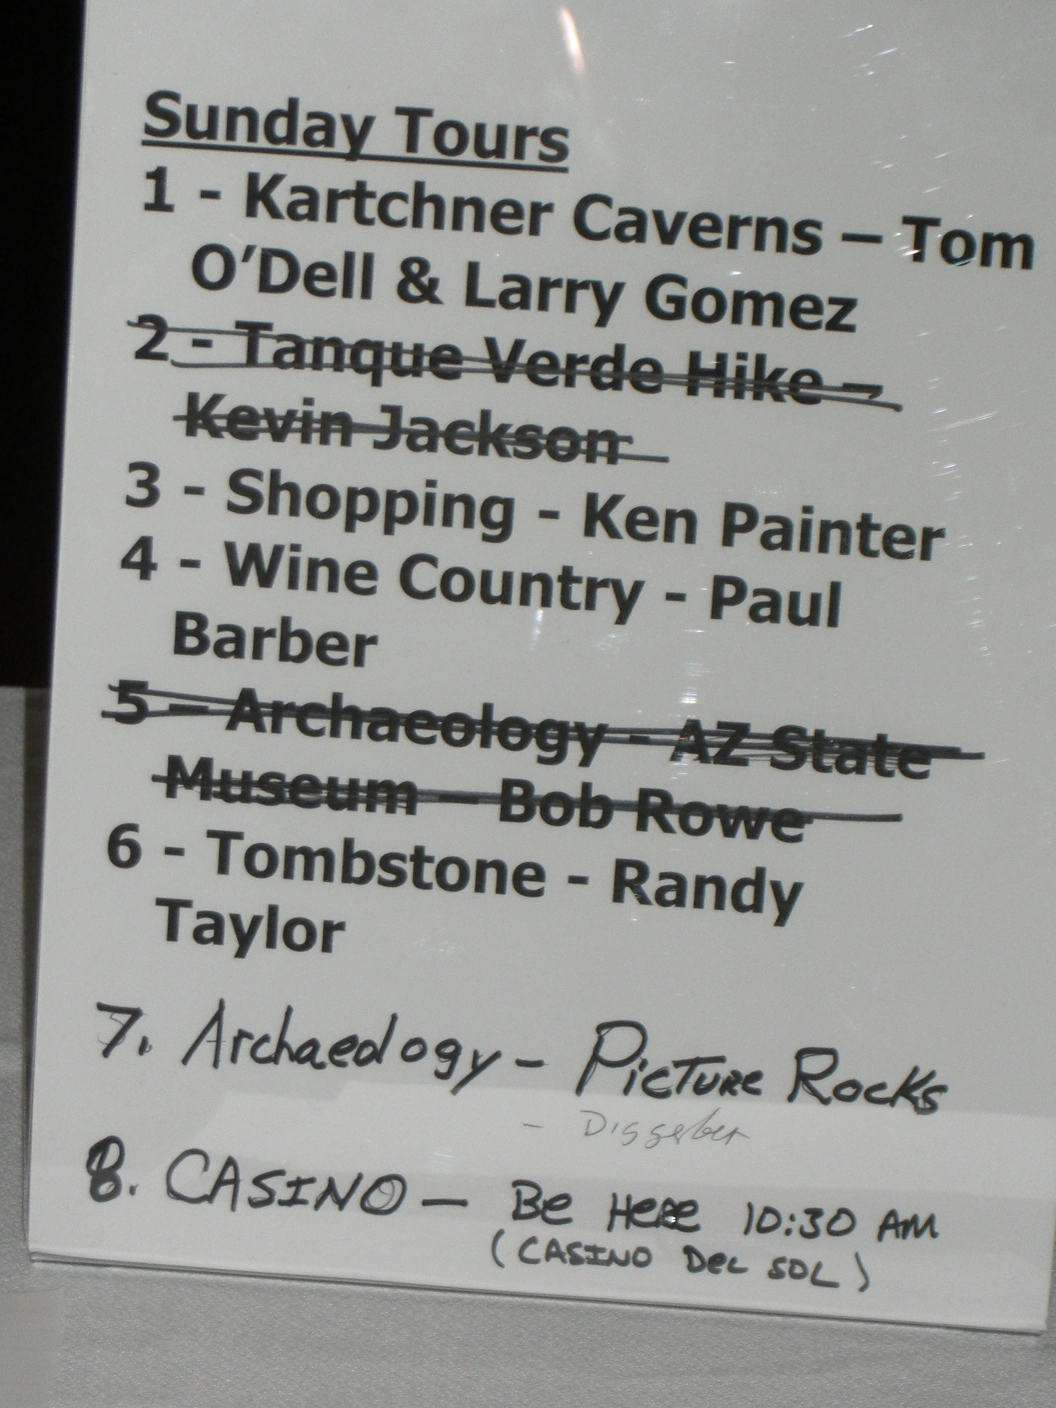 Sunday Tours
1 - Kartchner Caverns – Tom
O'Dell & Larry Gomez
2 - Tanque Verde Hike –
Kevin Jackson
3 - Shopping - Ken Painter
4 - Wine Country - Paul
Barber
5 – Archaeology - AZ State
Museum – Bob Rowe
6 - Tombstone - Randy
Taylor
7. Archaeology - Picture Rocks
-
8. CASINO - Be Here 10:30 AM
(CASINO Del SOL)